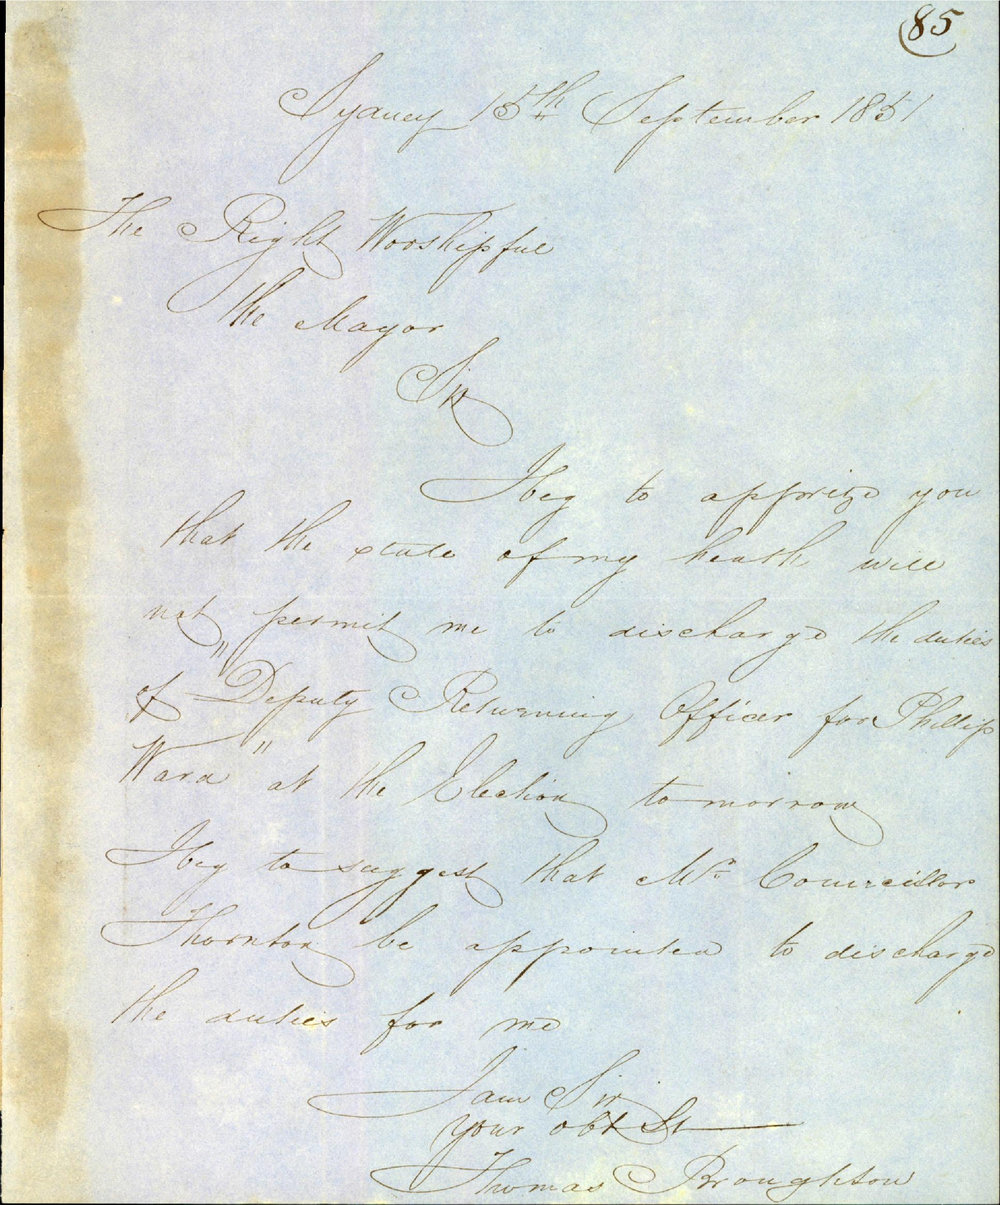 85
Sydney 15th September 1851
The Right Worshipful
The Mayor
Sir
I beg to apprize you
that the state of my heath will
not permit me to discharge the duties
of "Deputy Returning Officer for Phillip
Ward" at the Election to morrow
I beg to suggest that Mr. Councillor
Thornton be appointed to discharge
the duties for me
I am Sir
your obt St
Thomas Broughton